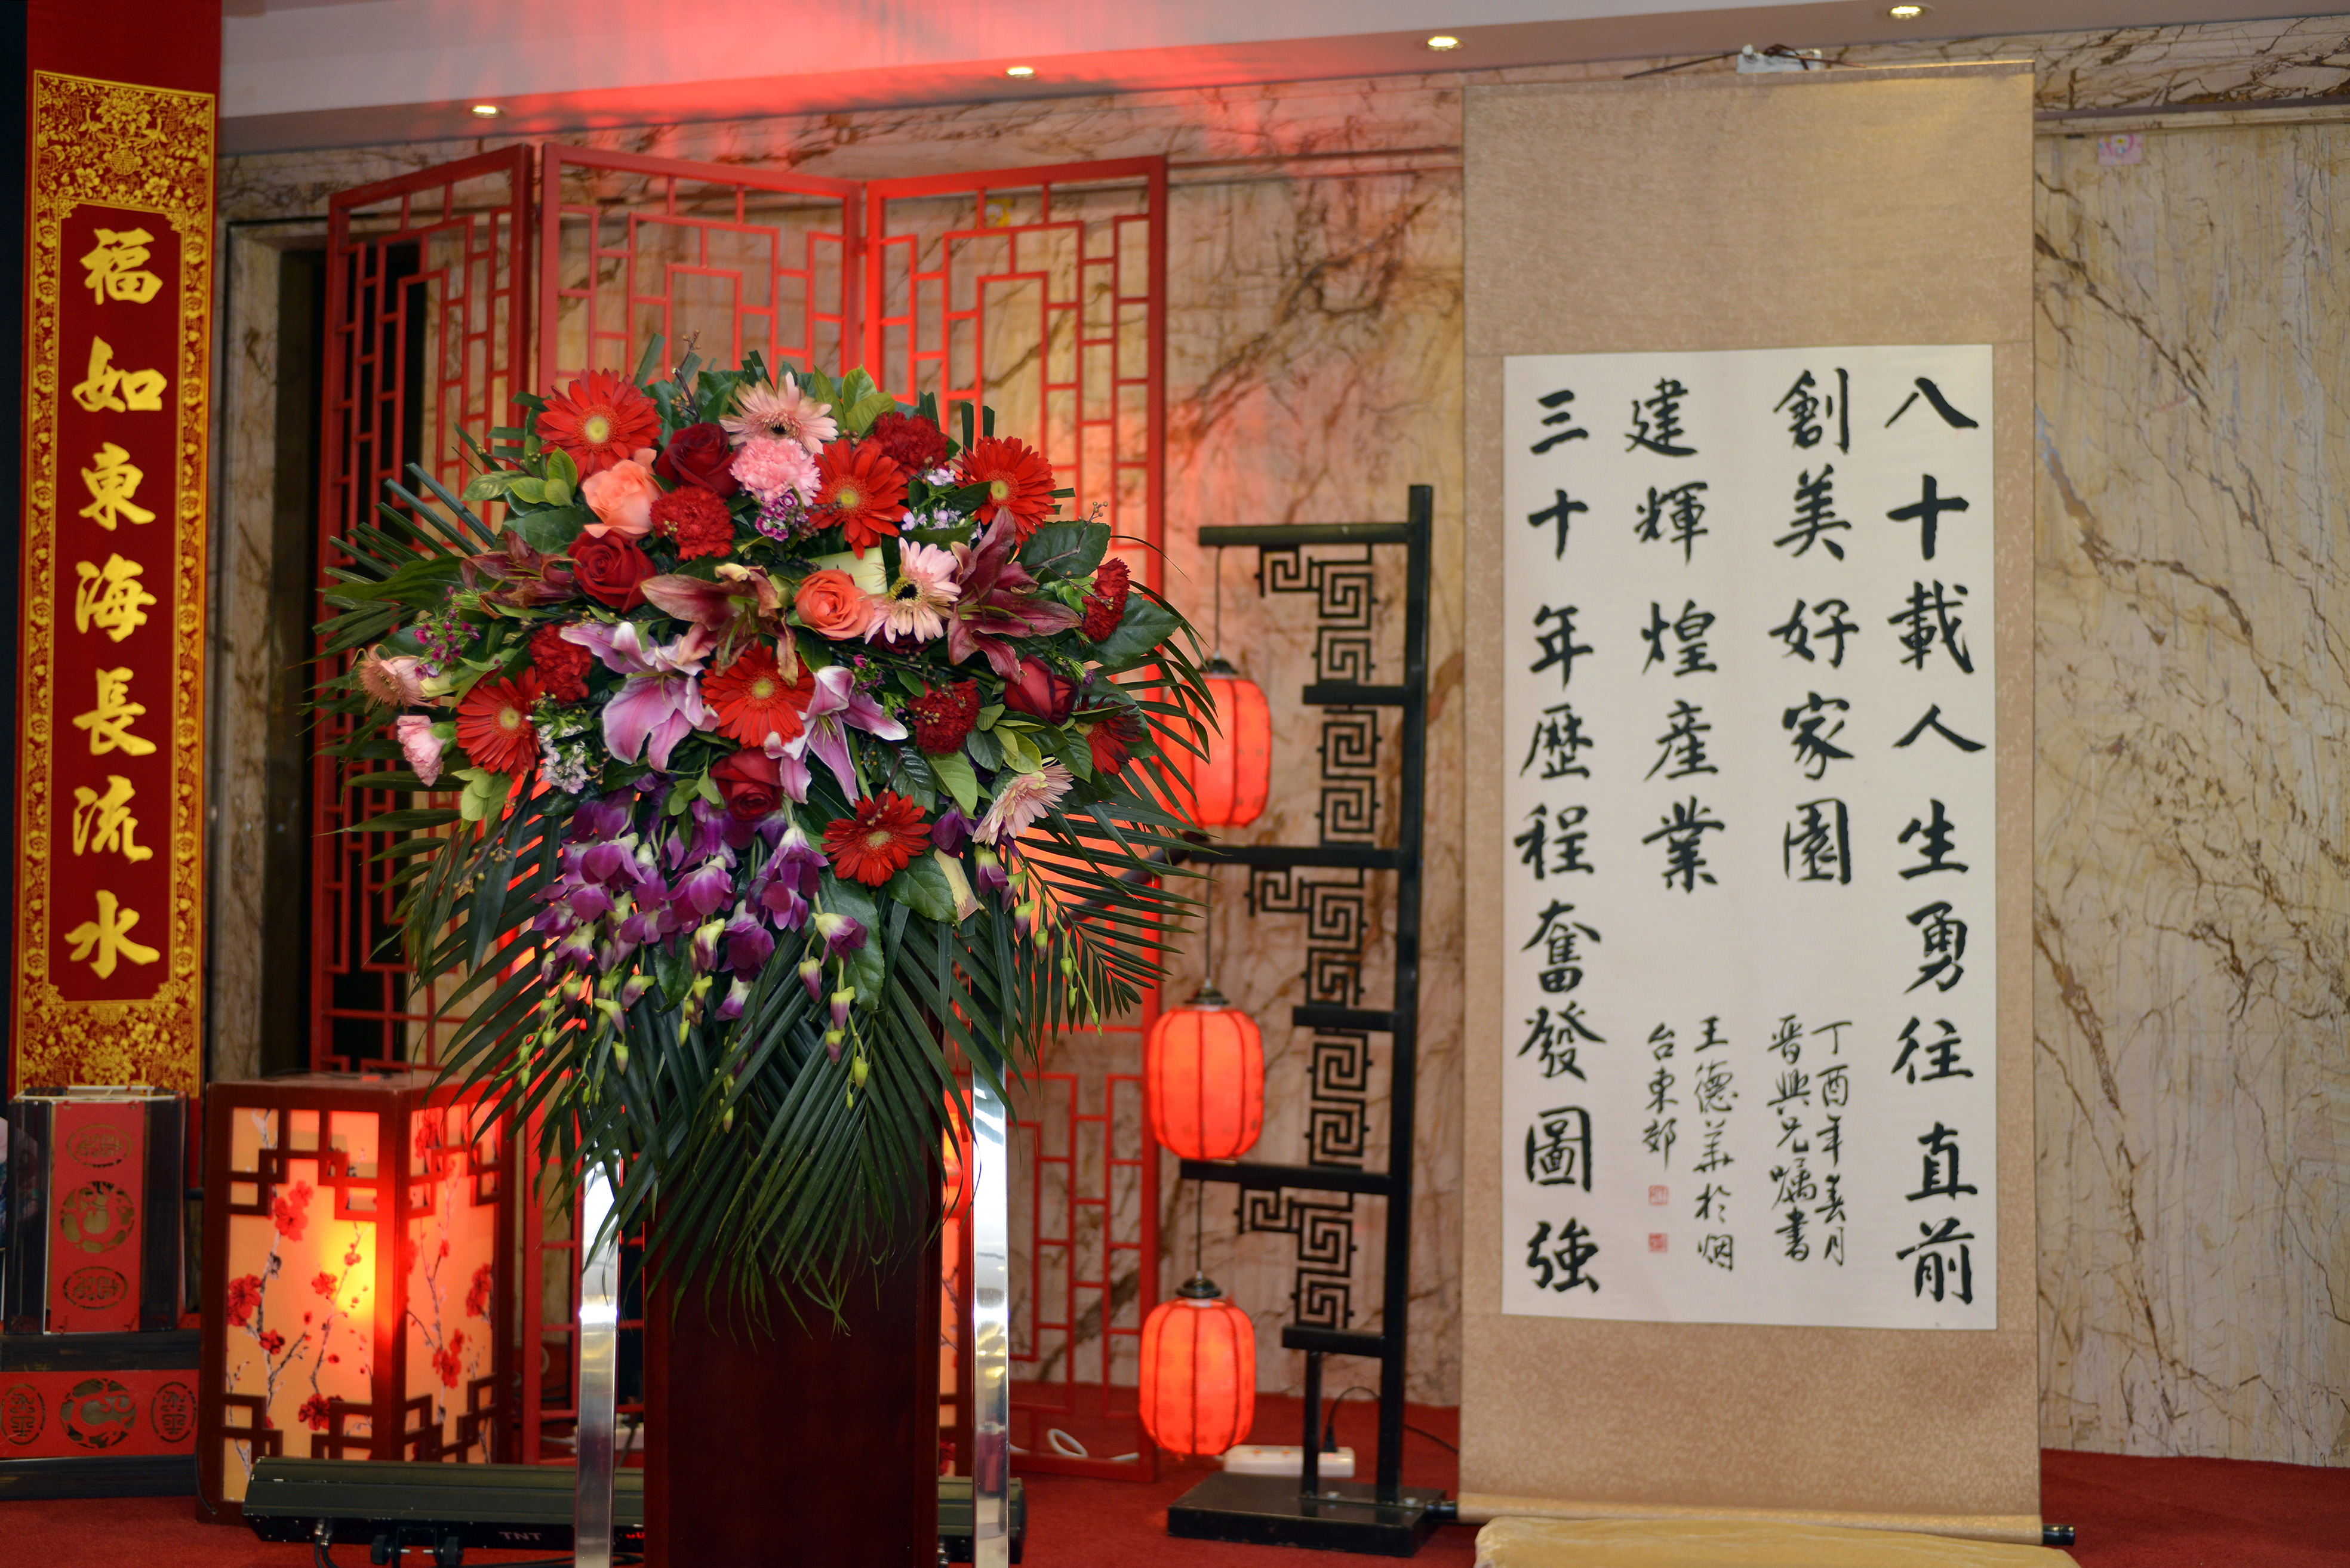 福如東海長流水
八十載人生勇往直前
創美好家園
建輝煌産業
三十年歷程奮發圖強
丁酉年春月
晋興兄嘱書
王德美於烟
台東郊
TNT